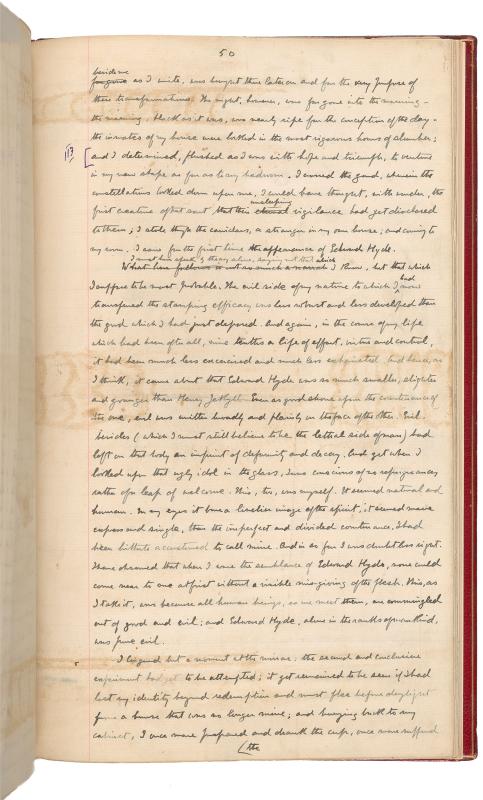 50
beside me
for good as I write, was brought there later on and for the very purpose of
these transformations. The night, however, was far gone into the morning -
the morning, black as it was, was nearly ripe for the conception of the day -
the inmates of my house were locked in the most rigorous hours of slumber;
113 [and I determined, flushed as I was with hope and triumph, to venture
in my new shape as far as to my bedroom. I crossed the yard, wherein the
constellations looked down upon me, I could have thought, with wonder, the
unsleeping
first creature of that sort that their vigilance had yet disclosed
to them; I stole through the corridors, a stranger in my own house; and coming to
my room. I saw for the first time the appearance of Edward Hyde.
I must here speak by theory alone, saying not that which
I know, but that which
had
I suppose to be most probable. The evil side of my nature to which I now
transferred the stamping efficacy was less robust and less developed than
the good which I had just deposed. And again, in the course of my life
which had been, after all, nine tenths a life of effort, virtue and control,
it had been much less exercised and much less exhausted. And hence, as
I think, it came about that Edward Hyde was so much smaller, slighter
and younger than Henry Jekyll. Even as good shone upon the countenance of
the one, evil was written broadly and plainly on the face of the other. Evil
besides (which I must still believe to be the lethal side of man) had
left on that body an imprint of deformity and decay. And yet when I
looked upon that ugly idol in the glass, I was conscious of no repugnance,
rather of a leap of welcome. This, too, was myself. It seemed natural and
human. In my eyes it bore a livelier image of the spirit, it seemed more
express and single, than the imperfect and divided countenance, I had
been hitherto accustomed to call mine. And in so far I was doubtless right.
I have observed that when I wore the semblance of Edward Hyde, none could
come near to me at first without a visible misgiving of the flesh. This, as
I take it, was because all human beings, as we meet them, are commingled
out of good and evil; and Edward Hyde, alone in the ranks of mankind,
was pure evil.
I lingered but a moment at the mirror; the second and conclusive
experiment had yet to be attempted; it yet remained to be seen if I had
lost my identity beyond redemption and must flee before daylight
from a house that was no longer mine; and hurrying back to my
cabinet, I once more prepared and drank the cup, once more suffered
(the